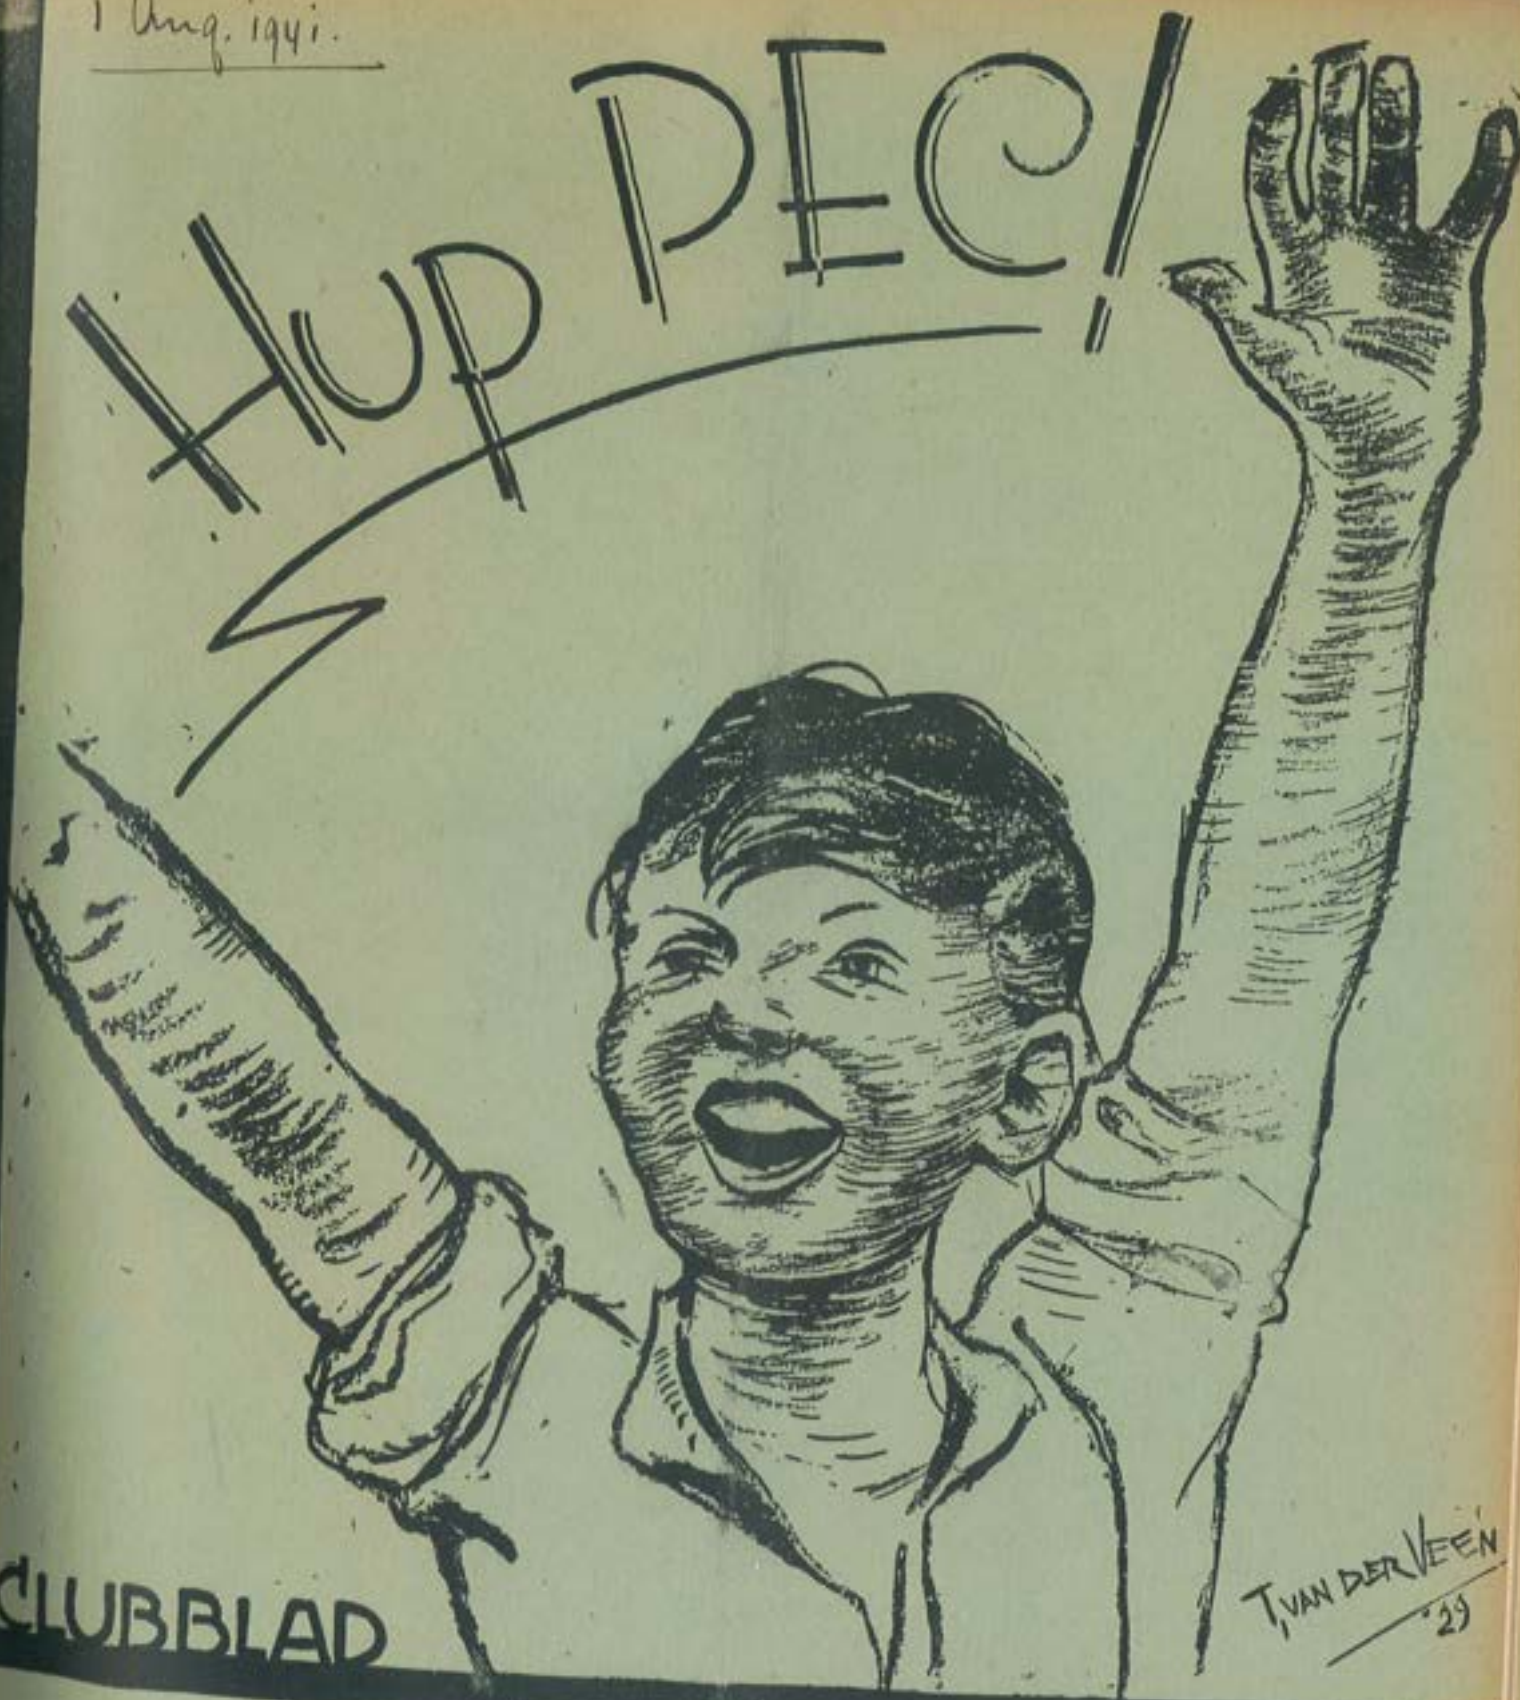 1 Aug. 1941.
HUP PEC!
CLUBBLAD
T. VAN DER VEEN
'29